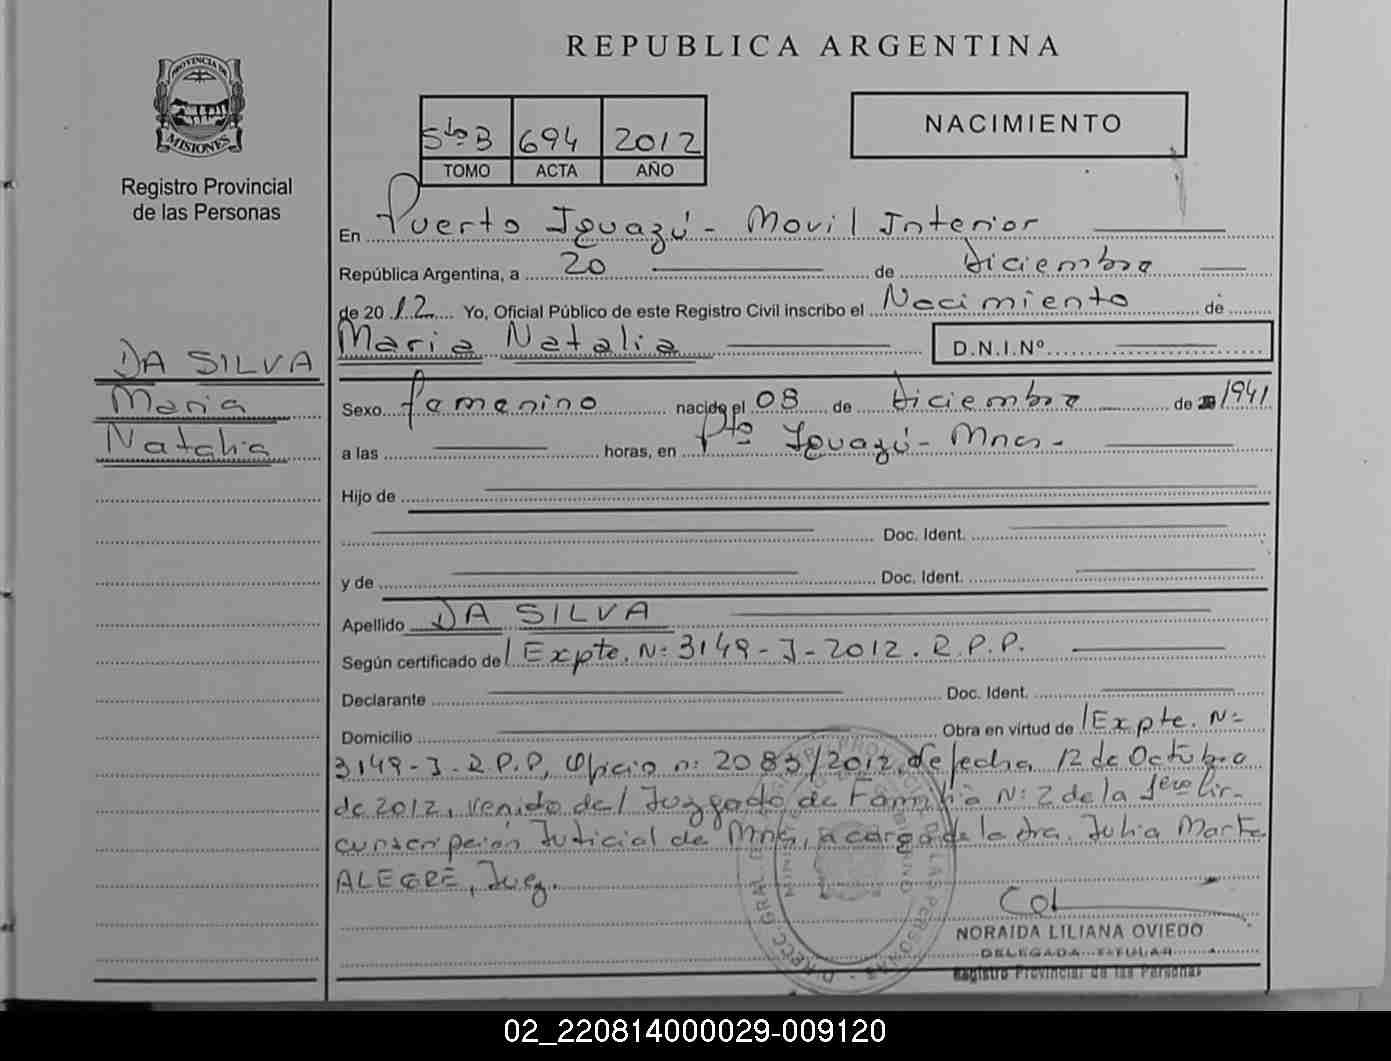 REPUBLICA ARGENTINA
PROVINCIA DE
MISIONES
Registro Provincial
de las Personas
5to B 694 2012
TOMO ACTA AÑO
NACIMIENTO
En Puerto Iguazú - Movil Interior
República Argentina, a 20 de diciembre
de 2012 Yo, Oficial Público de este Registro Civil inscribo el Nacimiento de
Maria Natalia D.N.I.Nº
DA SILVA
Maria
Natalia
Sexo femenino nacido el 08 de diciembre de 1941
a las horas, en Pto Iguazú - Mnes -
Hijo de
Doc. Ident.
y de Doc. Ident.
Apellido DA SILVA
Según certificado del Expte. Nº 3149-J-2012. R.P.P.
Declarante Doc. Ident.
Domicilio Obra en virtud del Expte. Nº
3149-J-R.P.P, Oficio nº 2083/2012, de fecha 12 de Octubre
de 2012, venido del Juzgado de Familia Nº 2 de la 1era Cir-
cunscripción Judicial de Mnes, a cargo de la dra. Julia Marta
ALEGRE, Juez.
NORAIDA LILIANA OVIEDO
DELEGADA TITULAR
Registro Provincial de las Personas
02_220814000029-009120